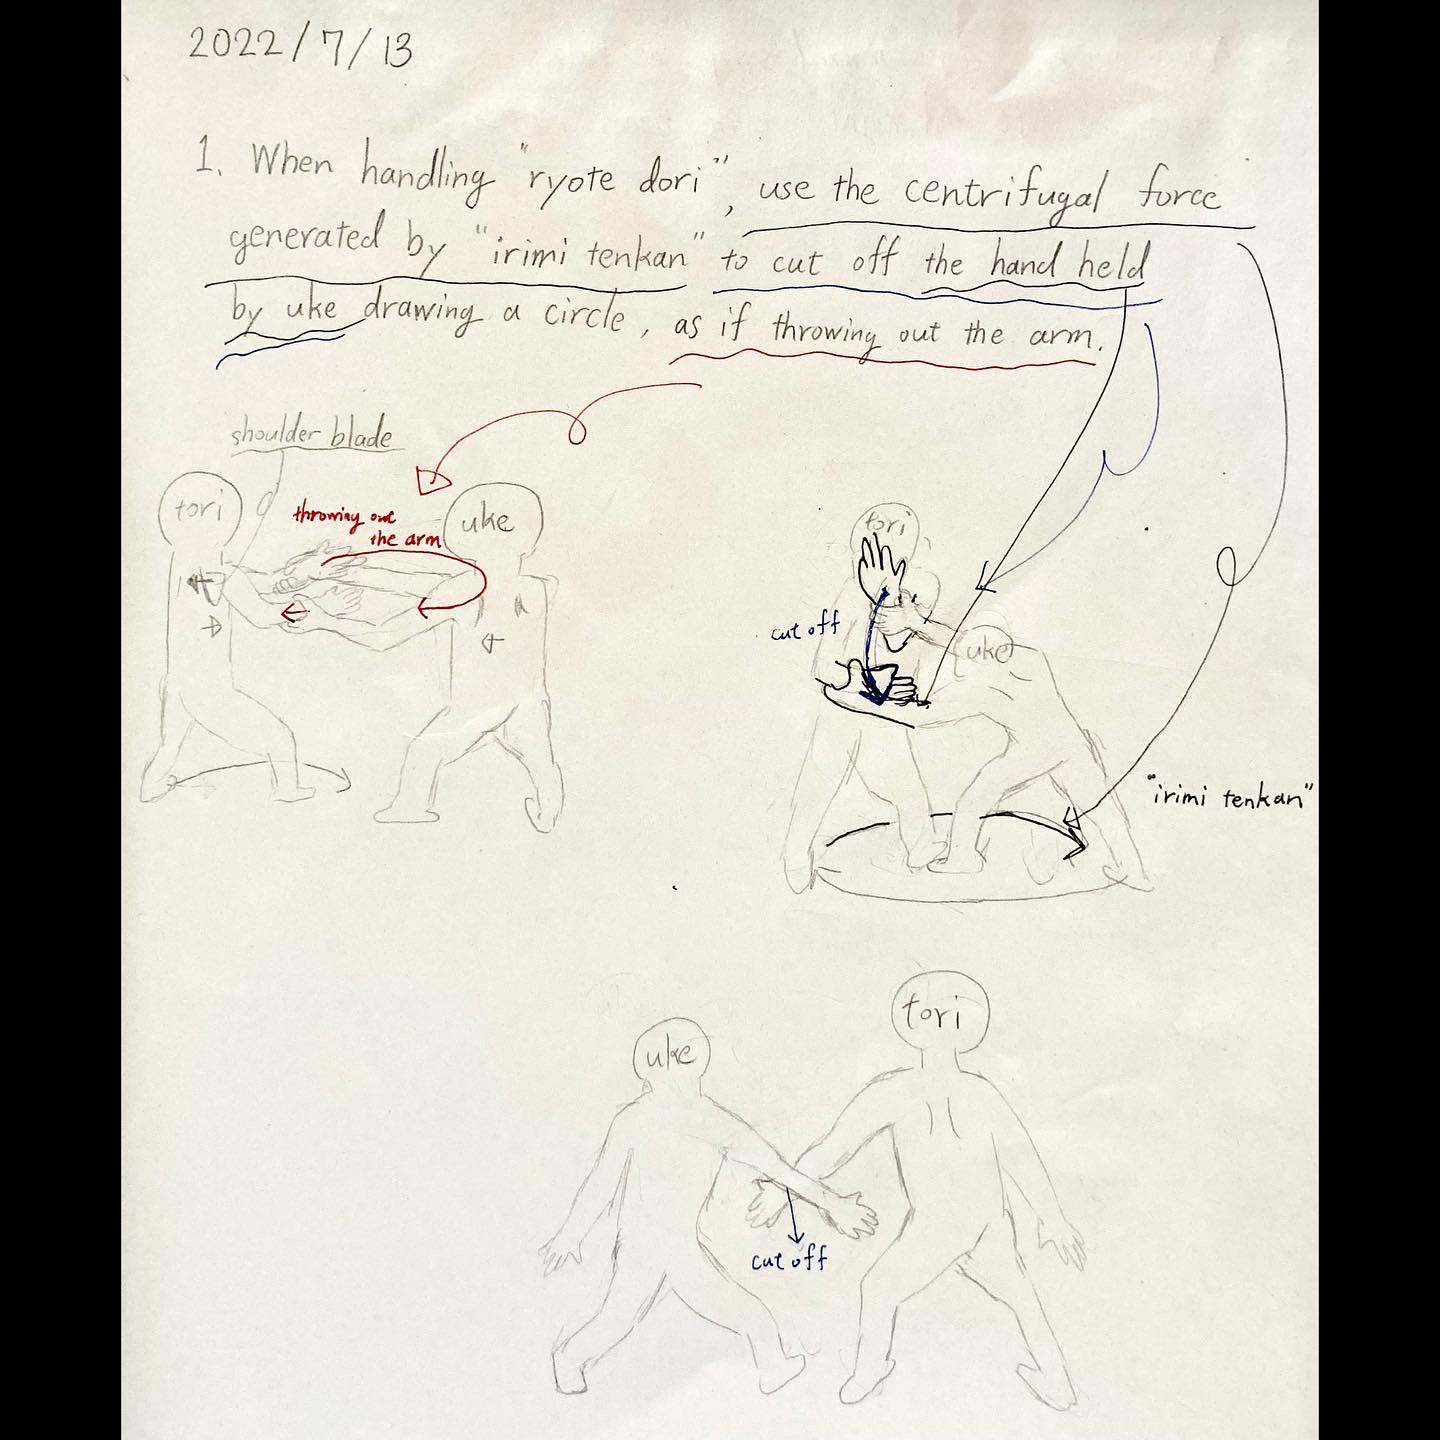 2022/7/13
1. When handling "ryote dori", use the centrifugal force
generated by "irimi tenkan" to cut off the hand held
by uke drawing a circle, as if throwing out the arm.
shoulder blade
tori
throwing out
the arm
uke
tori
cut off
uke
"irimi tenkan"
uke
tori
cut off